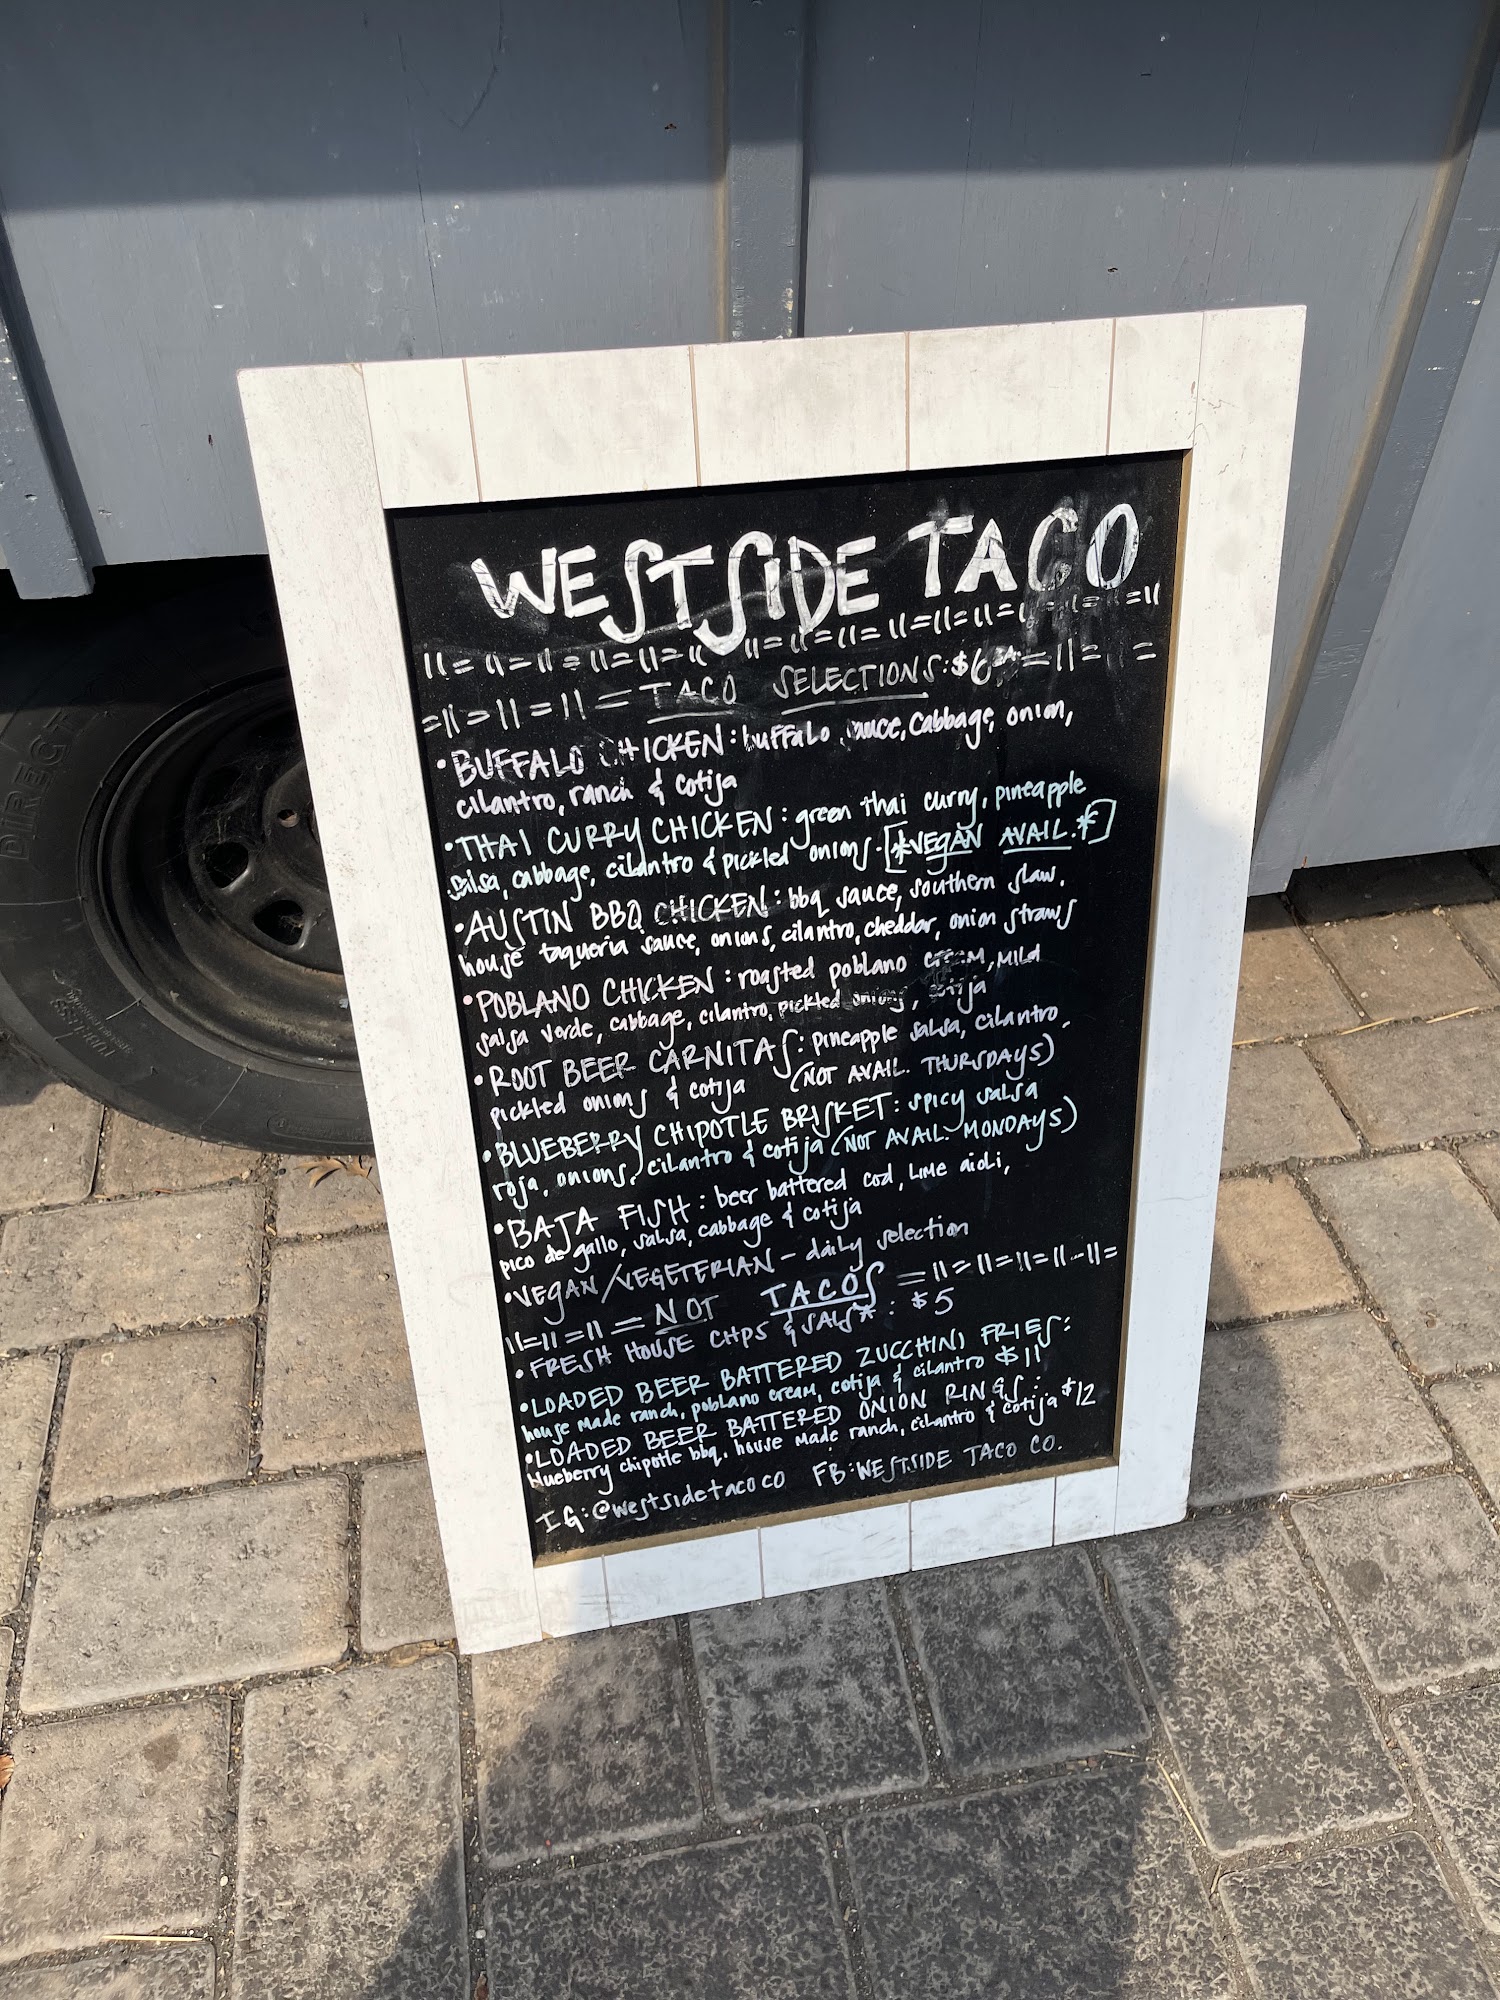 WESTSIDE TACO
TACO SELECTIONS: $6
• BUFFALO CHICKEN: buffalo sauce, cabbage, onion,
cilantro, ranch & cotija
• THAI CURRY CHICKEN: green thai curry, pineapple
salsa, cabbage, cilantro & pickled onions. [*VEGAN AVAIL.*]
• AUSTIN BBQ CHICKEN: bbq sauce, southern slaw,
house taqueria sauce, onions, cilantro, cheddar, onion straws
• POBLANO CHICKEN: roasted poblano cream, mild
salsa verde, cabbage, cilantro, pickled onions, cotija
• ROOT BEER CARNITAS: pineapple salsa, cilantro,
pickled onions & cotija (NOT AVAIL. THURSDAYS)
• BLUEBERRY CHIPOTLE BRISKET: spicy salsa
roja, onions, cilantro & cotija (NOT AVAIL. MONDAYS)
• BAJA FISH: beer battered cod, lime aioli,
pico de gallo, salsa, cabbage & cotija
• VEGAN/VEGETERIAN - daily selection
NOT TACOS
• FRESH HOUSE CHPS & SALS*: $5
• LOADED BEER BATTERED ZUCCHINI FRIES:
house made ranch, poblano cream, cotija & cilantro $11
• LOADED BEER BATTERED ONION RINGS:
blueberry chipotle bbq, house made ranch, cilantro & cotija $12
IG: @westsidetacoco FB: WESTSIDE TACO CO.
DIRECT
TUBELESS